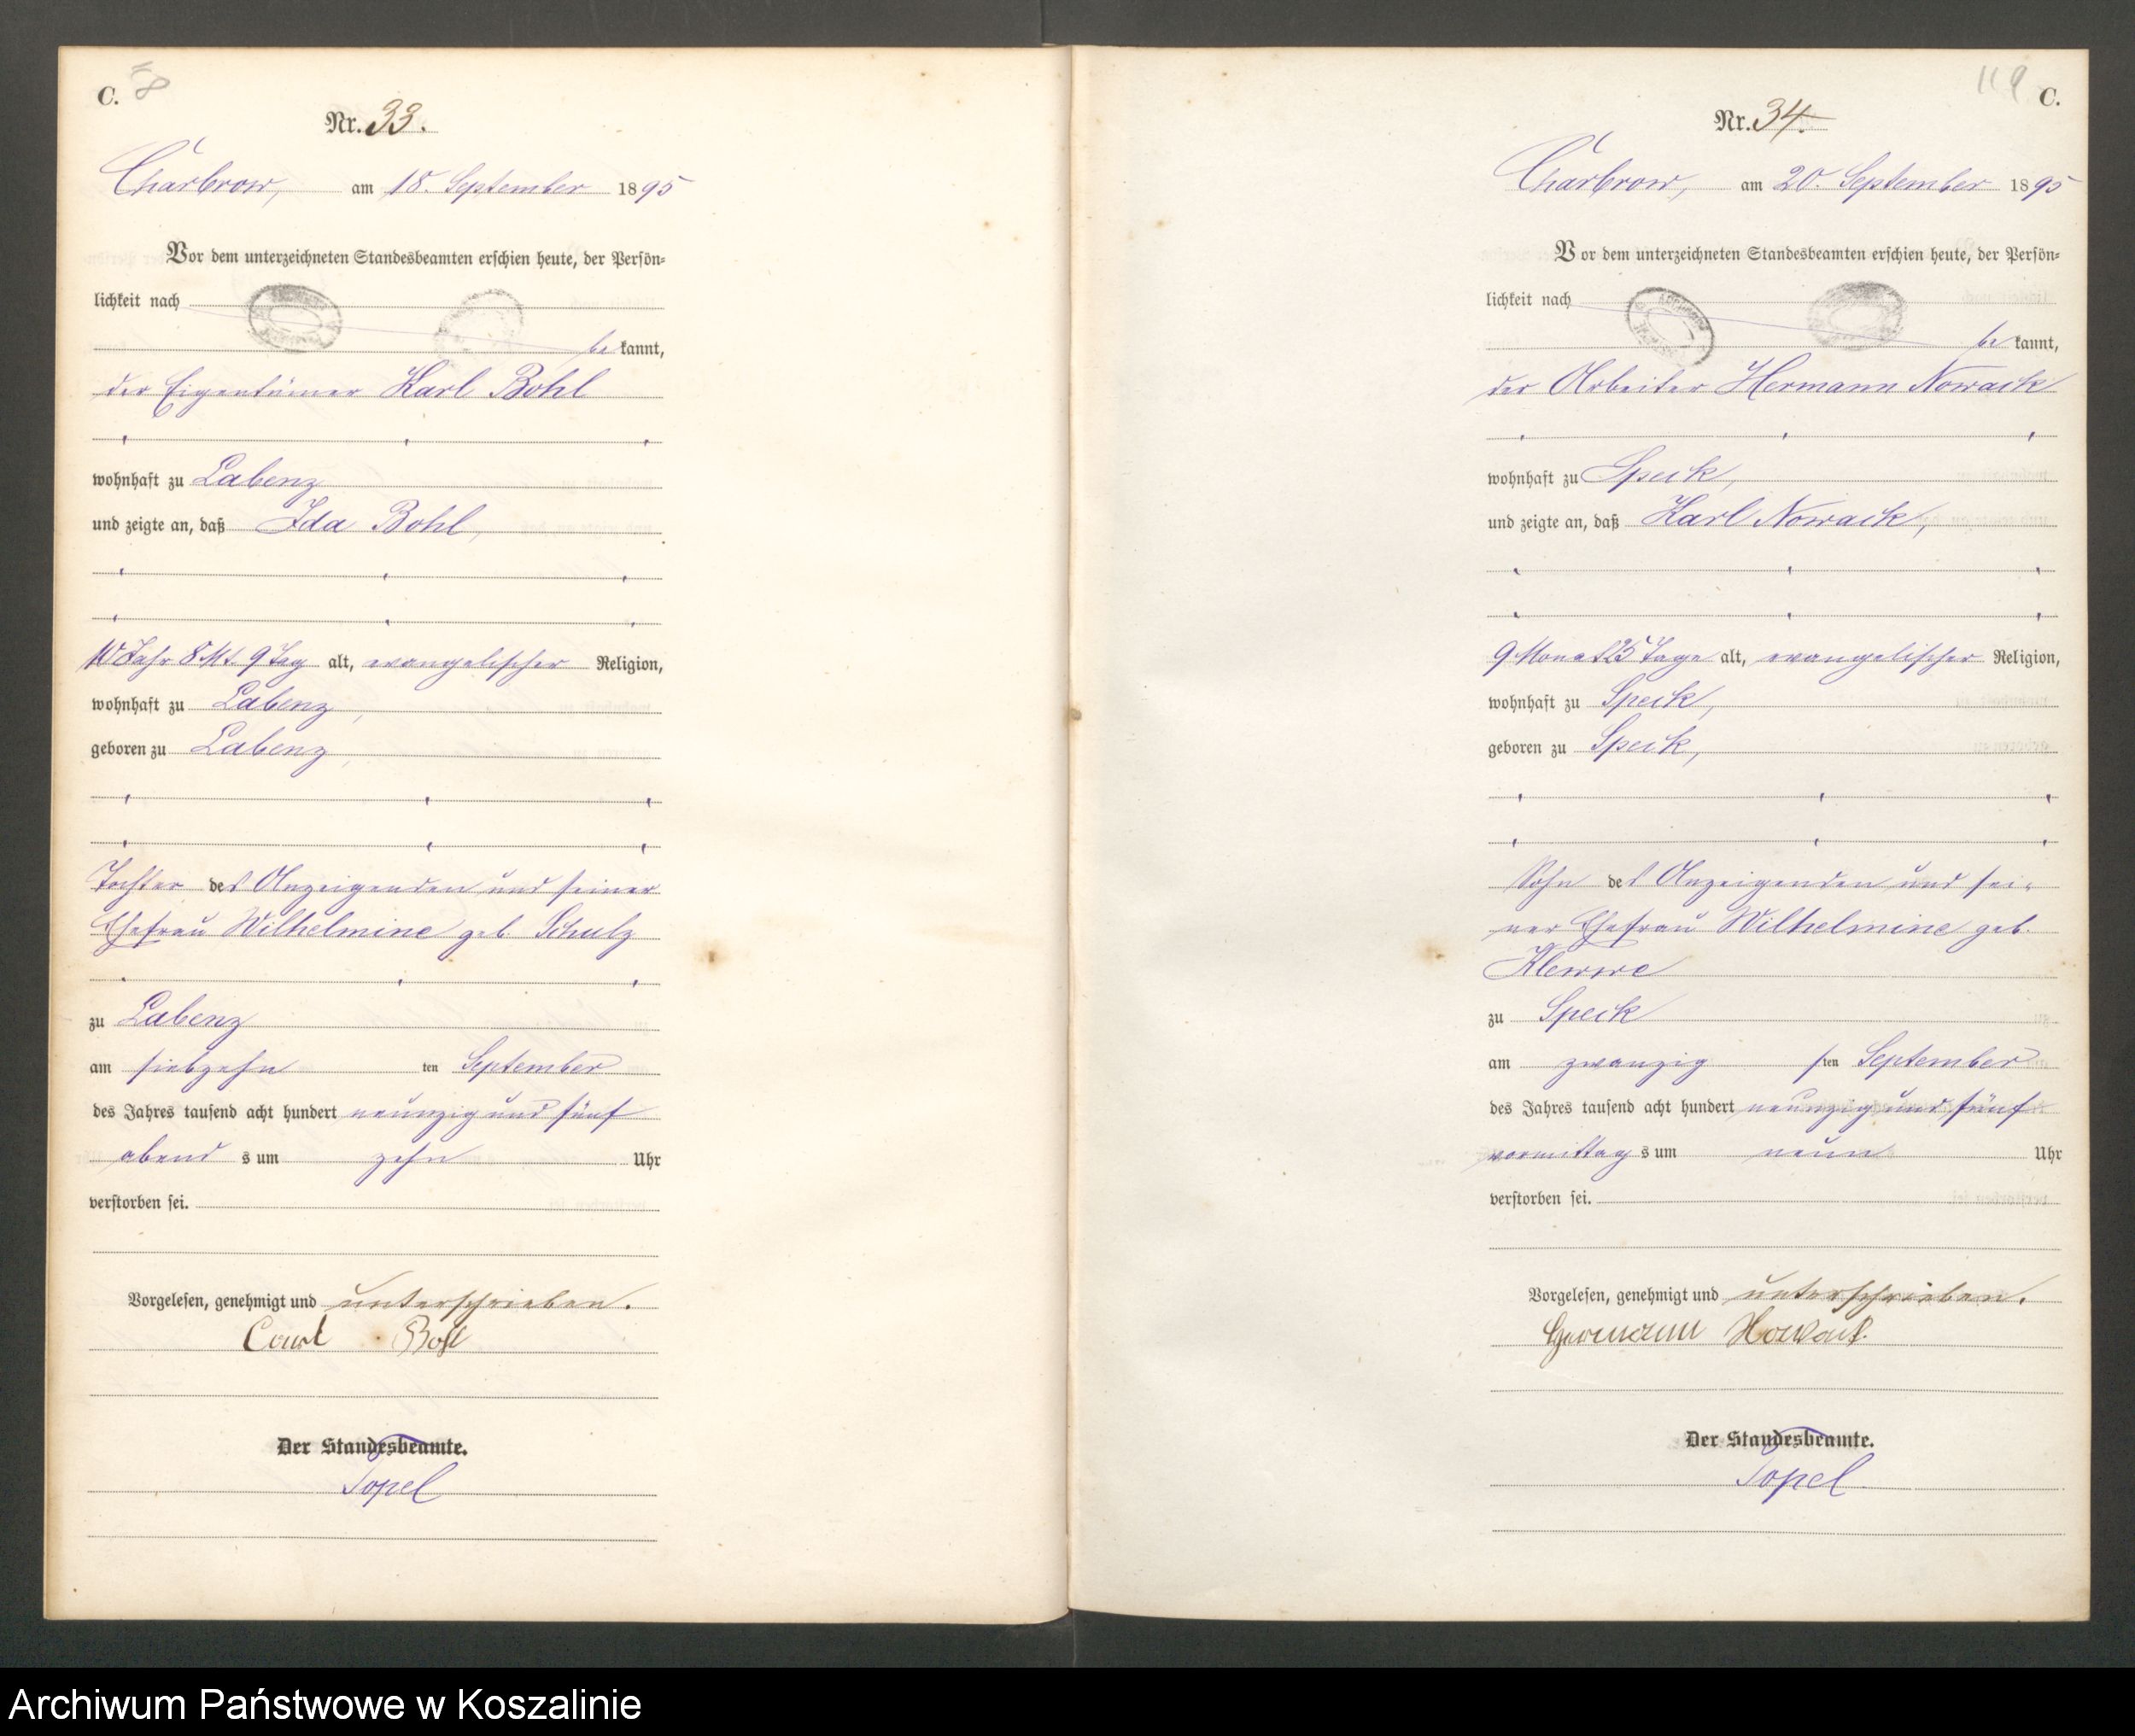 C.
Nr. 33.
Charbrow, am 18. September 1895
Vor dem unterzeichneten Standesbeamten erschien heute, der Persön-
lichkeit nach
be kannt,
der Eigentümer Karl Bohl
wohnhaft zu Labenz
und zeigte an, daß Ida Bohl,
10 Jahr 8 Mt. 9 Tag alt, evangelischer Religion,
wohnhaft zu Labenz,
geboren zu Labenz,
Tochter des Anzeigenden und seiner
Ehefrau Wilhelmine geb. Schulz
zu Labenz
am siebzehn ten September
des Jahres tausend acht hundert neunzig und fünf
abend s um zehn Uhr
verstorben sei.
Vorgelesen, genehmigt und unterschrieben.
Carl Bohl
Der Standesbeamte.
Topel
119 C.
Nr. 34.
Charbrow, am 20. September 1895
Vor dem unterzeichneten Standesbeamten erschien heute, der Persön-
lichkeit nach
be kannt,
der Arbeiter Hermann Nowack
wohnhaft zu Speck,
und zeigte an, daß Karl Nowack,
9 Monat 25 Tage alt, evangelischer Religion,
wohnhaft zu Speck,
geboren zu Speck,
Sohn des Anzeigenden und sei-
ner Ehefrau Wilhelmine geb.
Klewwe
zu Speck
am zwanzig sten September
des Jahres tausend acht hundert neunzig und fünf
vormittag s um neun Uhr
verstorben sei.
Vorgelesen, genehmigt und unterschrieben.
Hermann Nowack.
Der Standesbeamte.
Topel.
Archiwum Państwowe w Koszalinie